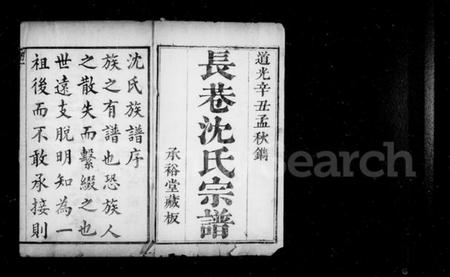 道光辛丑孟秋鐫
長巷沈氏宗譜
承裕堂藏板
沈氏族譜序
族之有譜也恐族人
之散失而繫綴之也
世遠支脱明知為一
祖後而不敢承接則
search